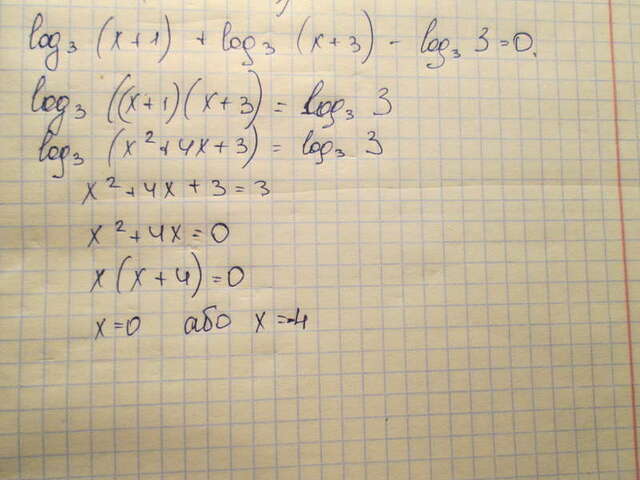 log₃ (x+1) + log₃ (x+3) - log₃ 3=0.
log₃ ((x+1)(x+3)) = log₃ 3
log₃ (x²+4x+3) = log₃ 3
x²+4x+3=3
x²+4x=0
x(x+4)=0
x=0 або x=-4